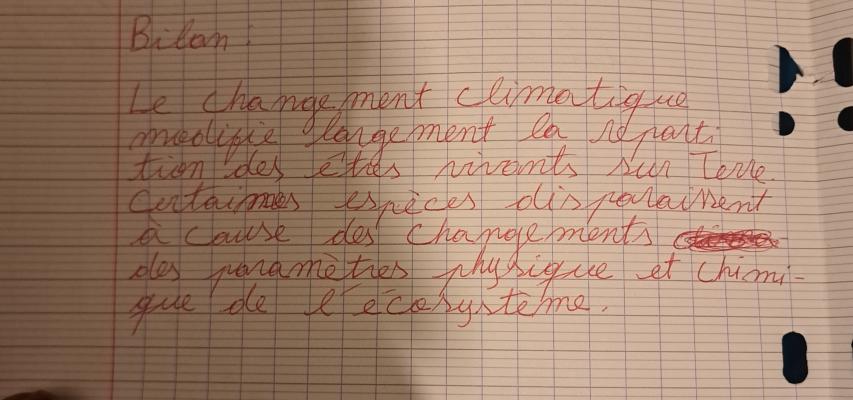 Bilan :
Le changement climatique
modifie largement la réparti
tion des êtres vivants sur Terre.
Certaines espèces disparaissent
à cause des changements
des paramètres physique et chimi-
que de l'écosystème.